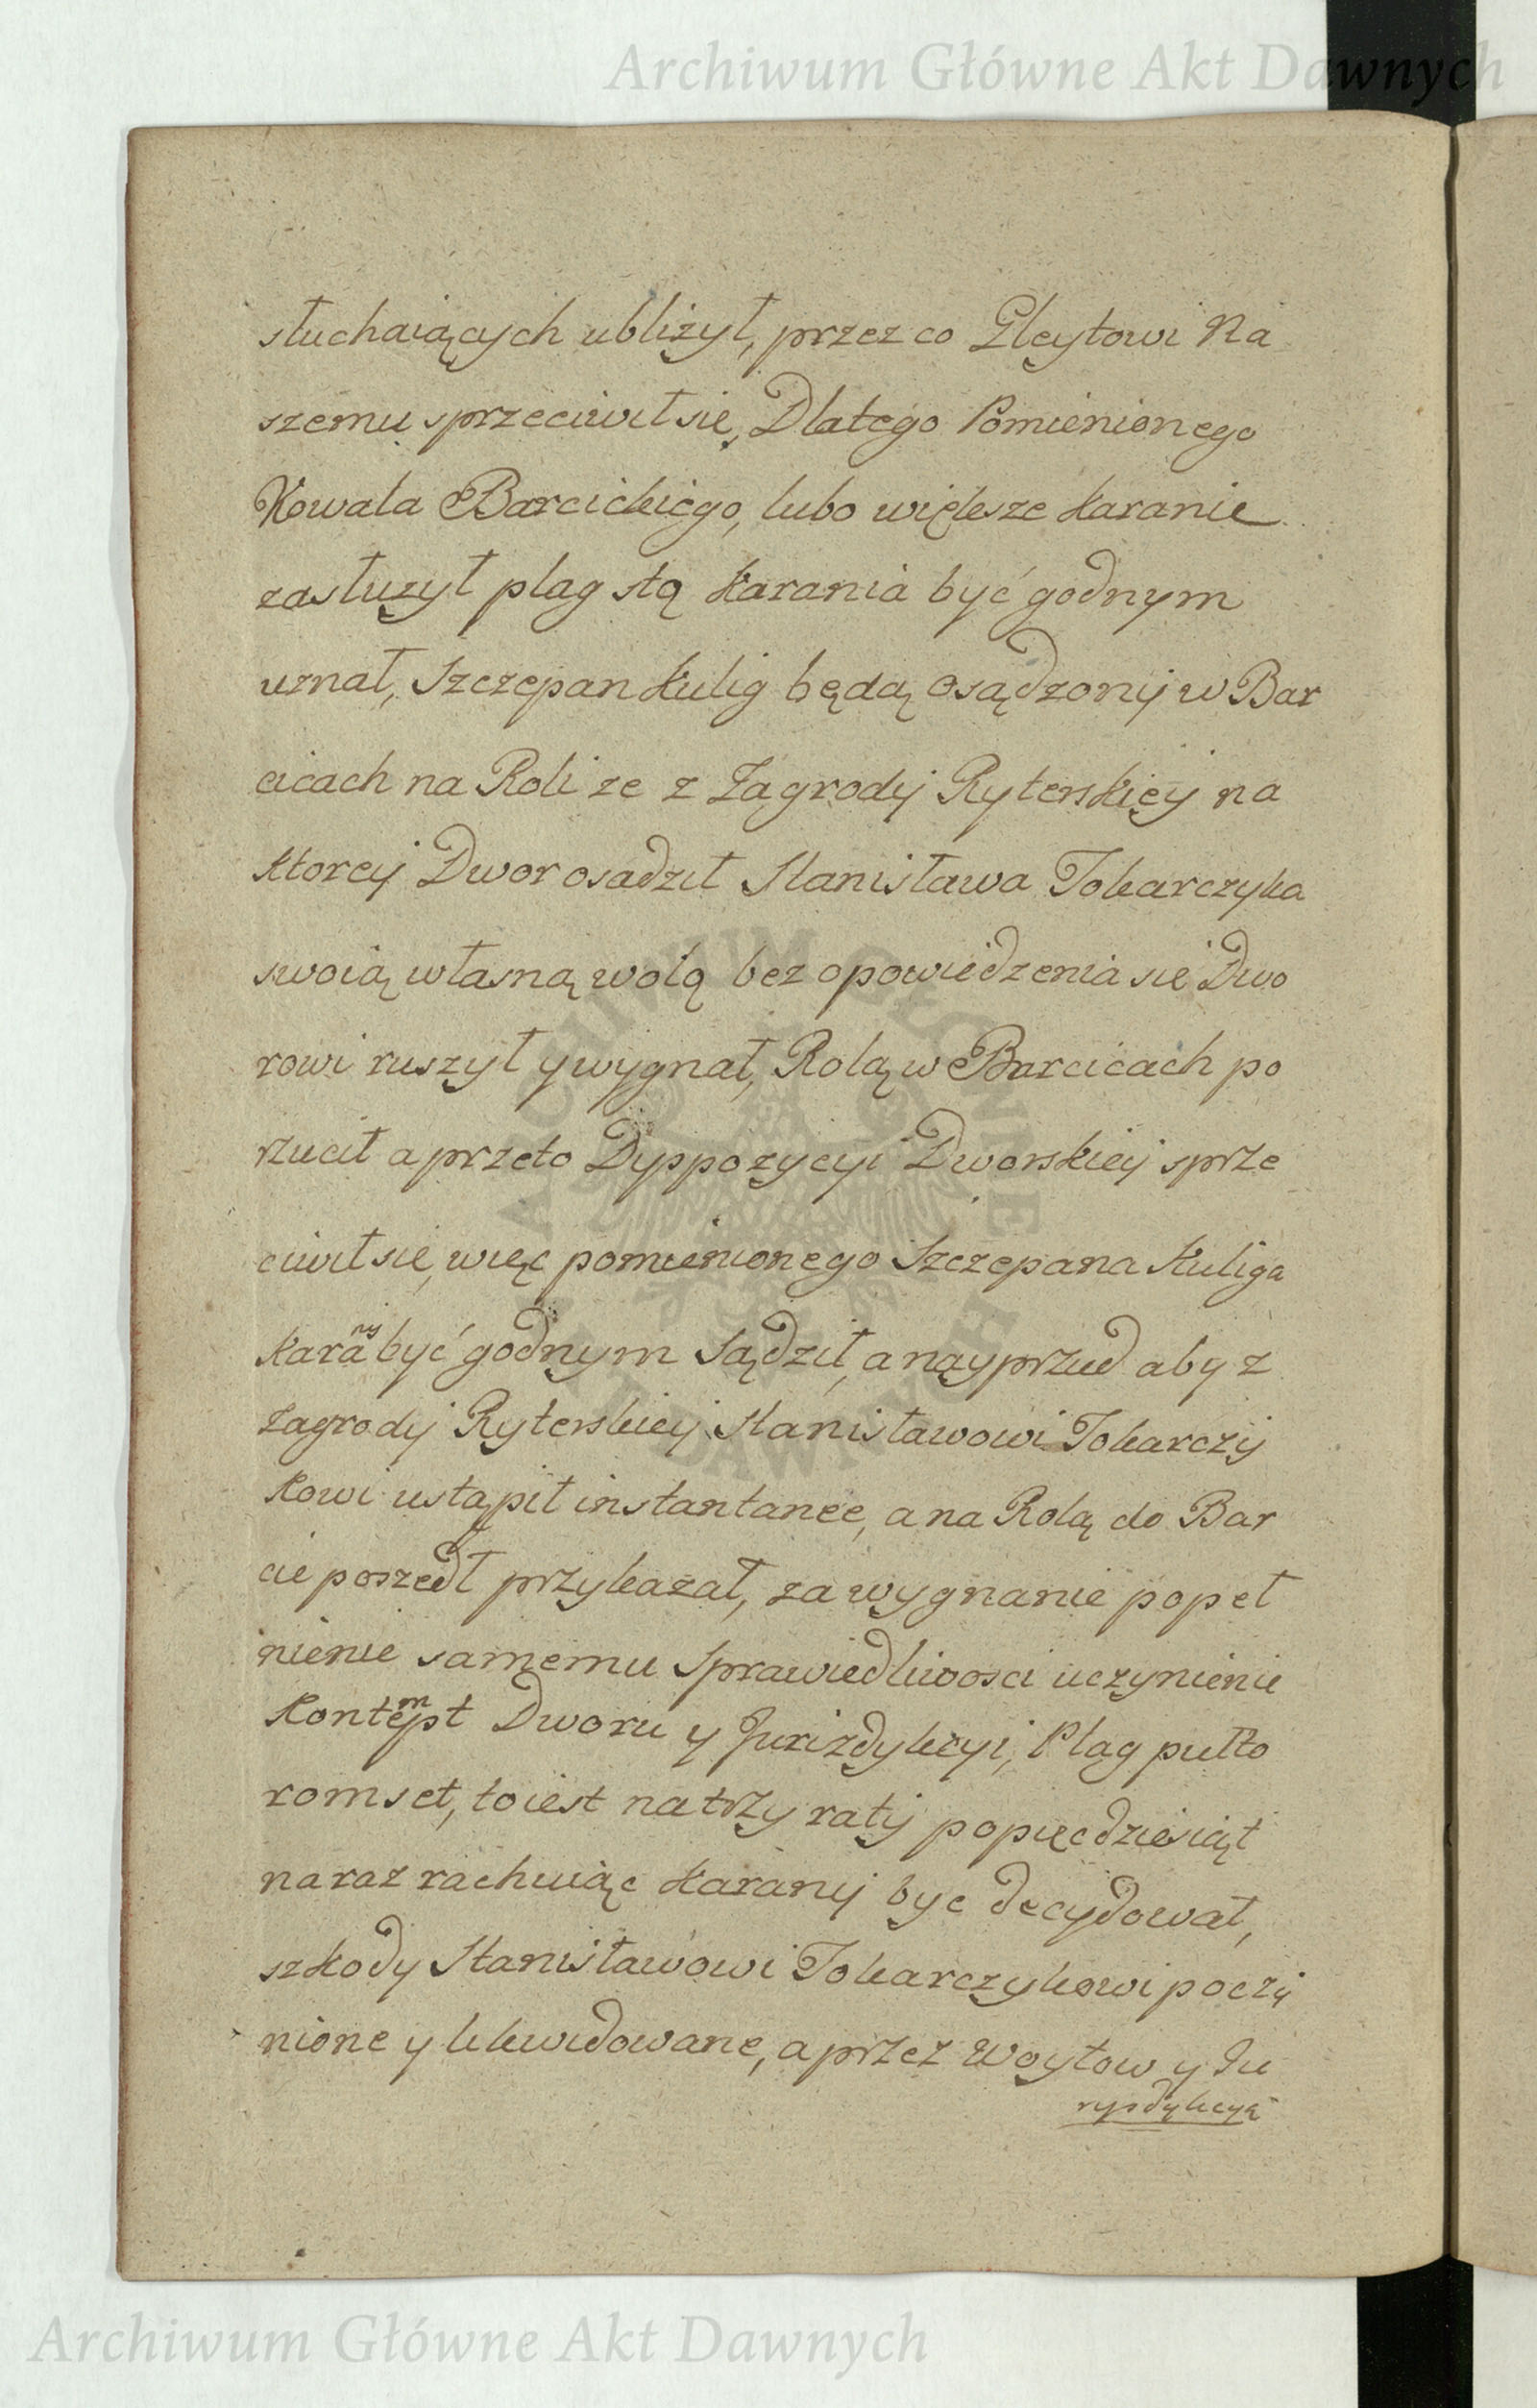 Archiwum Główne Akt Dawnych
słuchaiących ubliżył, przez co Gleytowi Na
szemu sprzeciwił sie, Dlatego Pomienionego
Kowala Barcickiego, lubo większe karanie
zasłużył plag stą karania być godnym
uznał, Szczepan Kulig będą osądzony w Bar
cicach na Roli ze z Zagrody Ryterskiey na
ktorey Dwor osadził Stanisława Tokarczyka
swoią własną wolą bez opowiedzenia sie Dwo
rowi ruszył y wygnał, Rolą w Barcicach po
rzucił a przeto Dyspozycyi Dworskiey sprze
ciwił sie, więc pomienionego Szczepana Kuliga
karany być godnym sądził, a nayprzud aby z
Zagrody Ryterskiey Stanisławowi Tokarczy
kowi ustąpił instantanee, a na Rolą do Bar
cic poszedł przykazał, za wygnanie popeł
nienie samemu sprawiedliwosci uczynienie
Kontempt Dworu y Jurizdykcyi, Plag pułto
romset, to iest na trzy raty po pięcdziesiąt
na raz rachuiąc karany byc decydował,
szkody Stanisławowi Tokarczykowi poczy
nione y likwidowane, a przez Woytow y Ju
rysdykcyą
Archiwum Główne Akt Dawnych